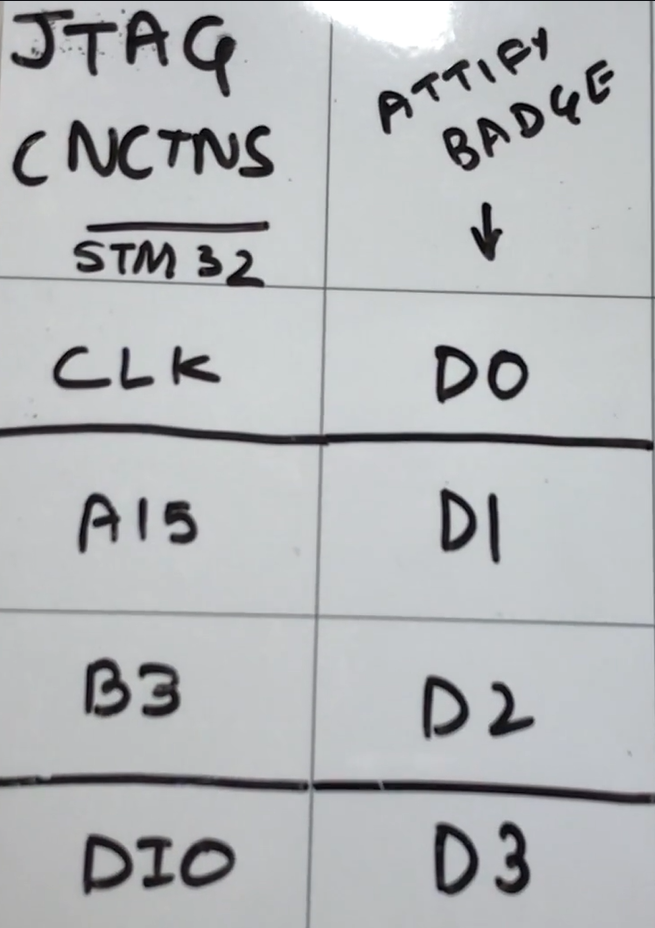 JTAG
CNCTNS
STM 32
ATTIFY
BADGE
CLK D0
A15 D1
B3 D2
DIO D3